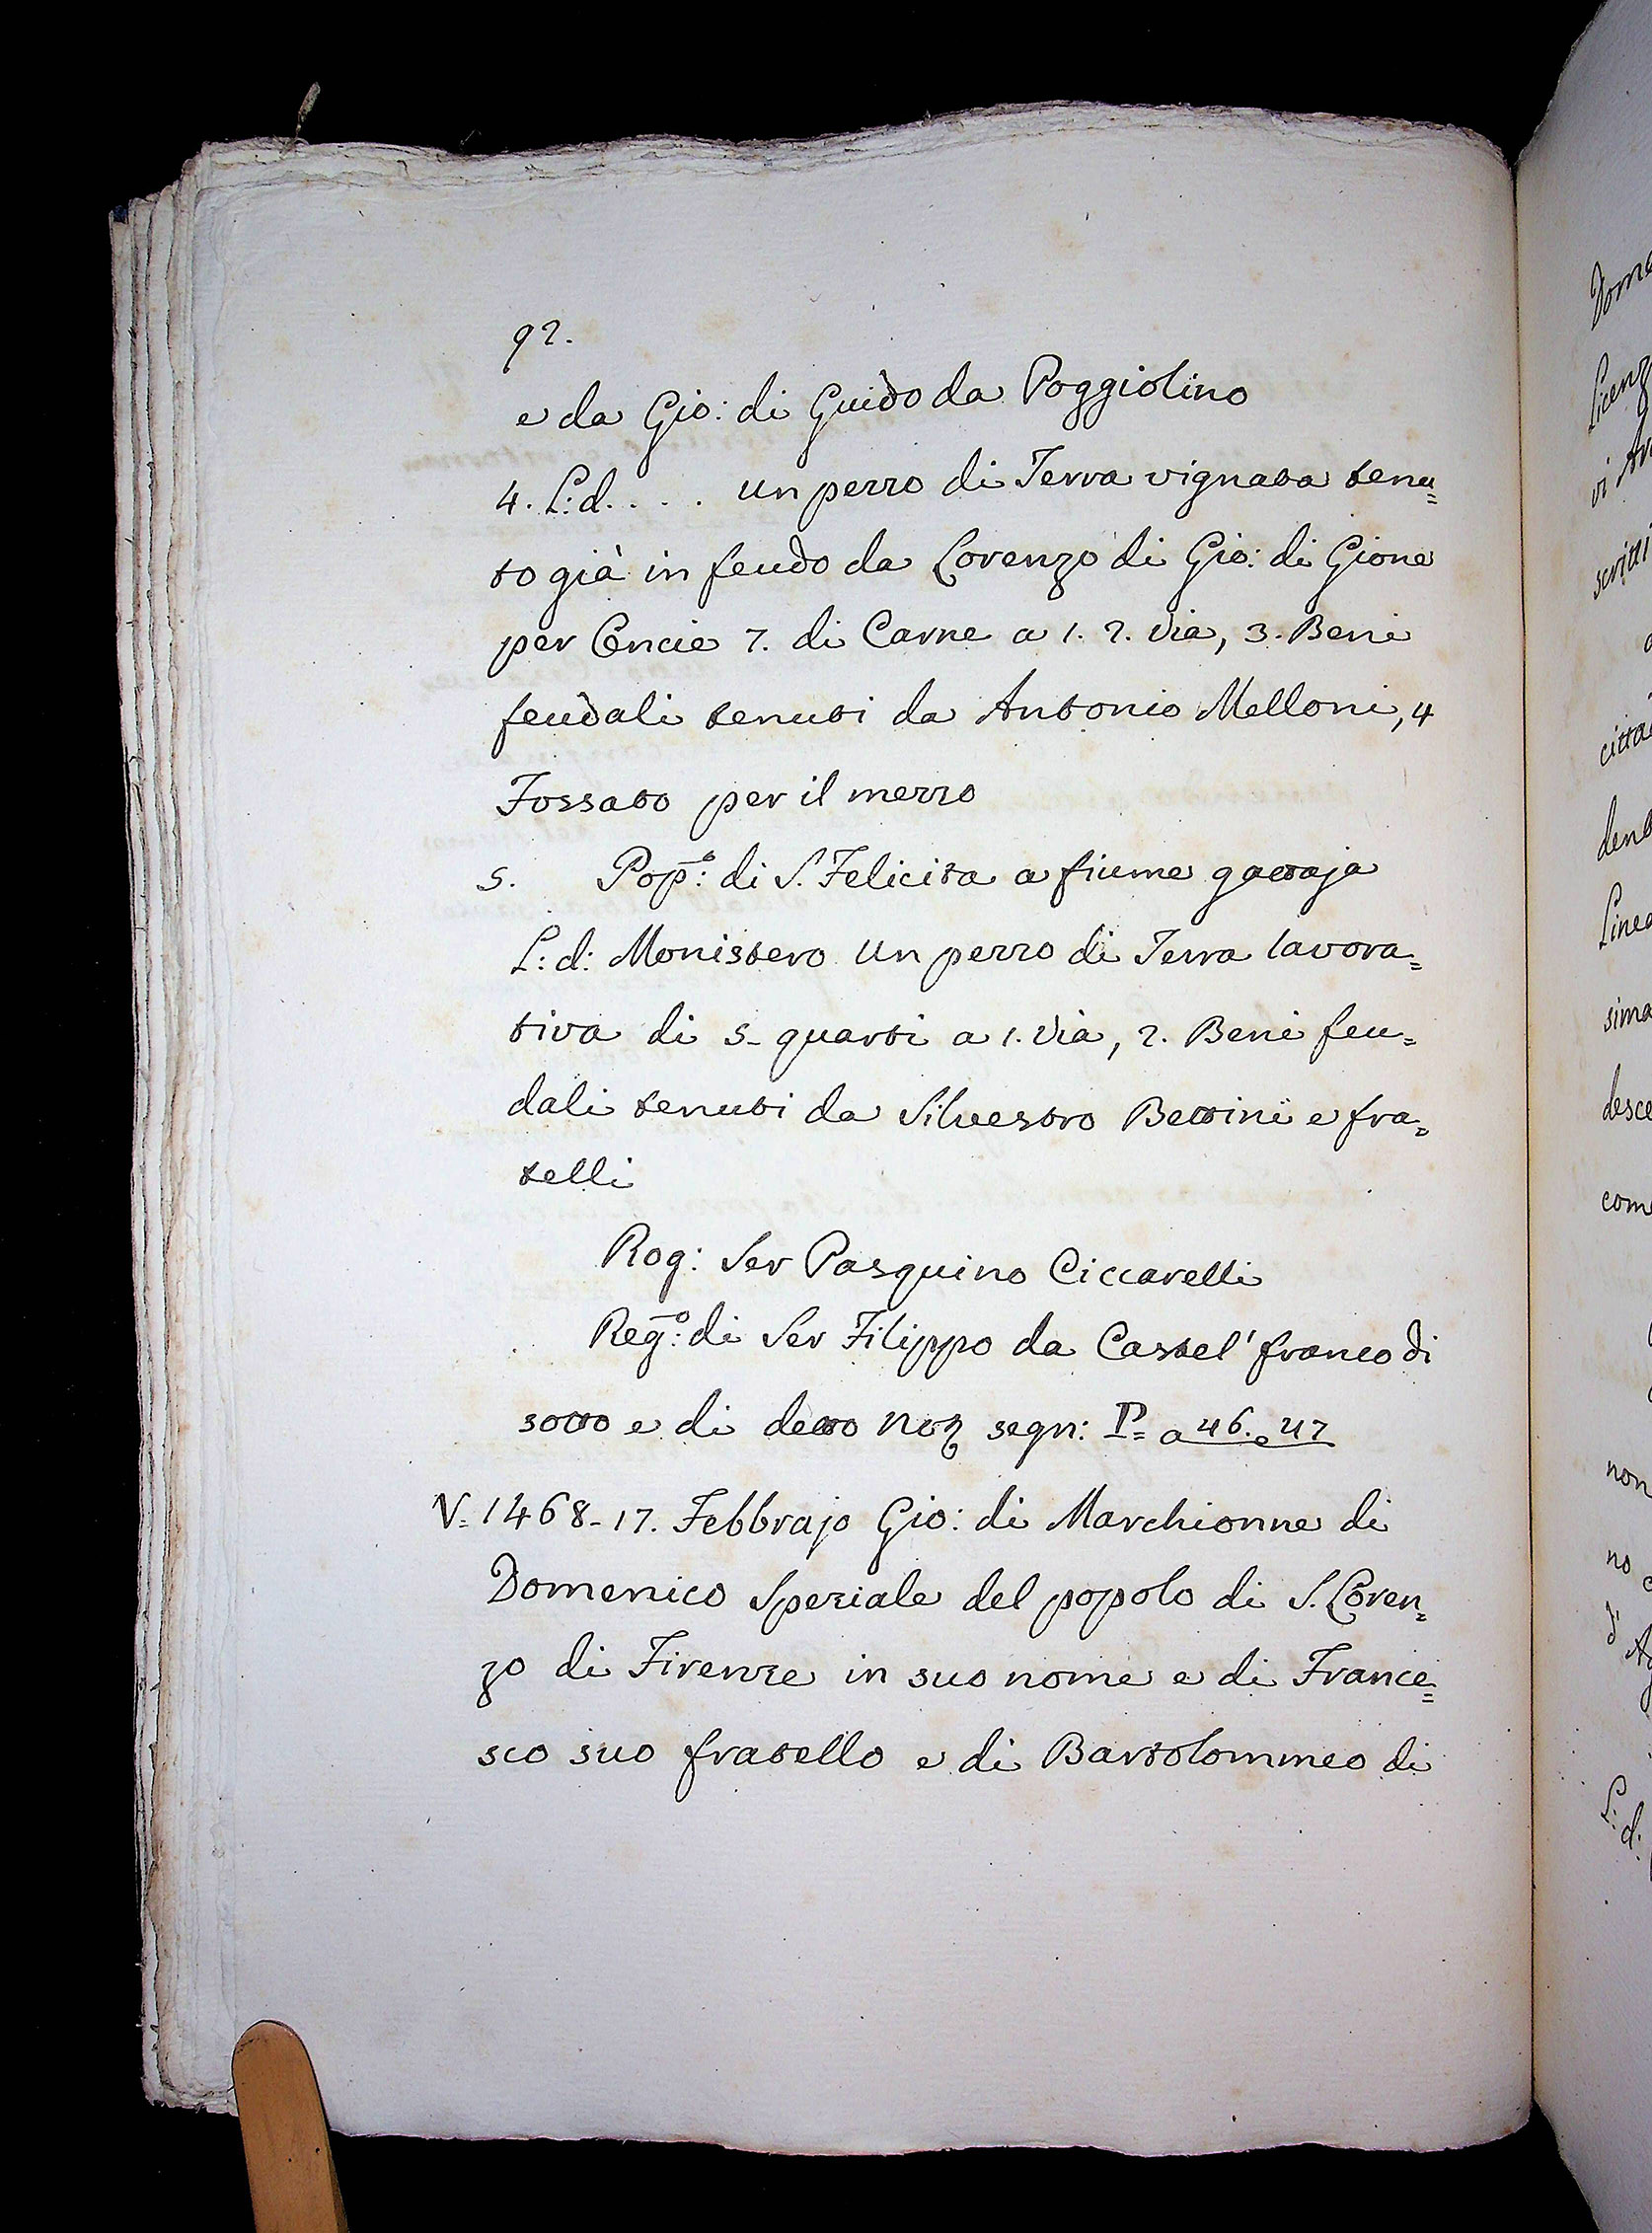 92.
e da Gio: di Guido da Poggiolino
4. L: d. . . . un pezzo di Terra vignata tenu=
to già in feudo da Lorenzo di Gio: di Gione
per Oncie 7. di Carne a 1. 2. Via, 3. Beni
feudali tenuti da Antonio Melloni, 4
Fossato per il mezzo
5. Pop̄o: di S. Felicita a fiume gattaja
L: d: Monistero un pezzo di Terra lavora=
tiva di 5- quarti a 1. Via, 2. Beni feu=
dali tenuti da Silvestro Bettini e fra=
telli
Rog: Ser Pasquino Ciccarelli
Reḡo: di Ser Filippo da Castel' franco di
sotto e di detto Noz segn: P= a 46. e 47
V= 1468- 17. Febbrajo Gio: di Marchionne di
Domenico Speziale del popolo di S. Loren=
zo di Firenze in suo nome e di France=
sco suo fratello e di Bartolommeo di
Licenz
vi
scritti
citta
dent
Linea
sima
desce
com
non
no
d'
L:
d: